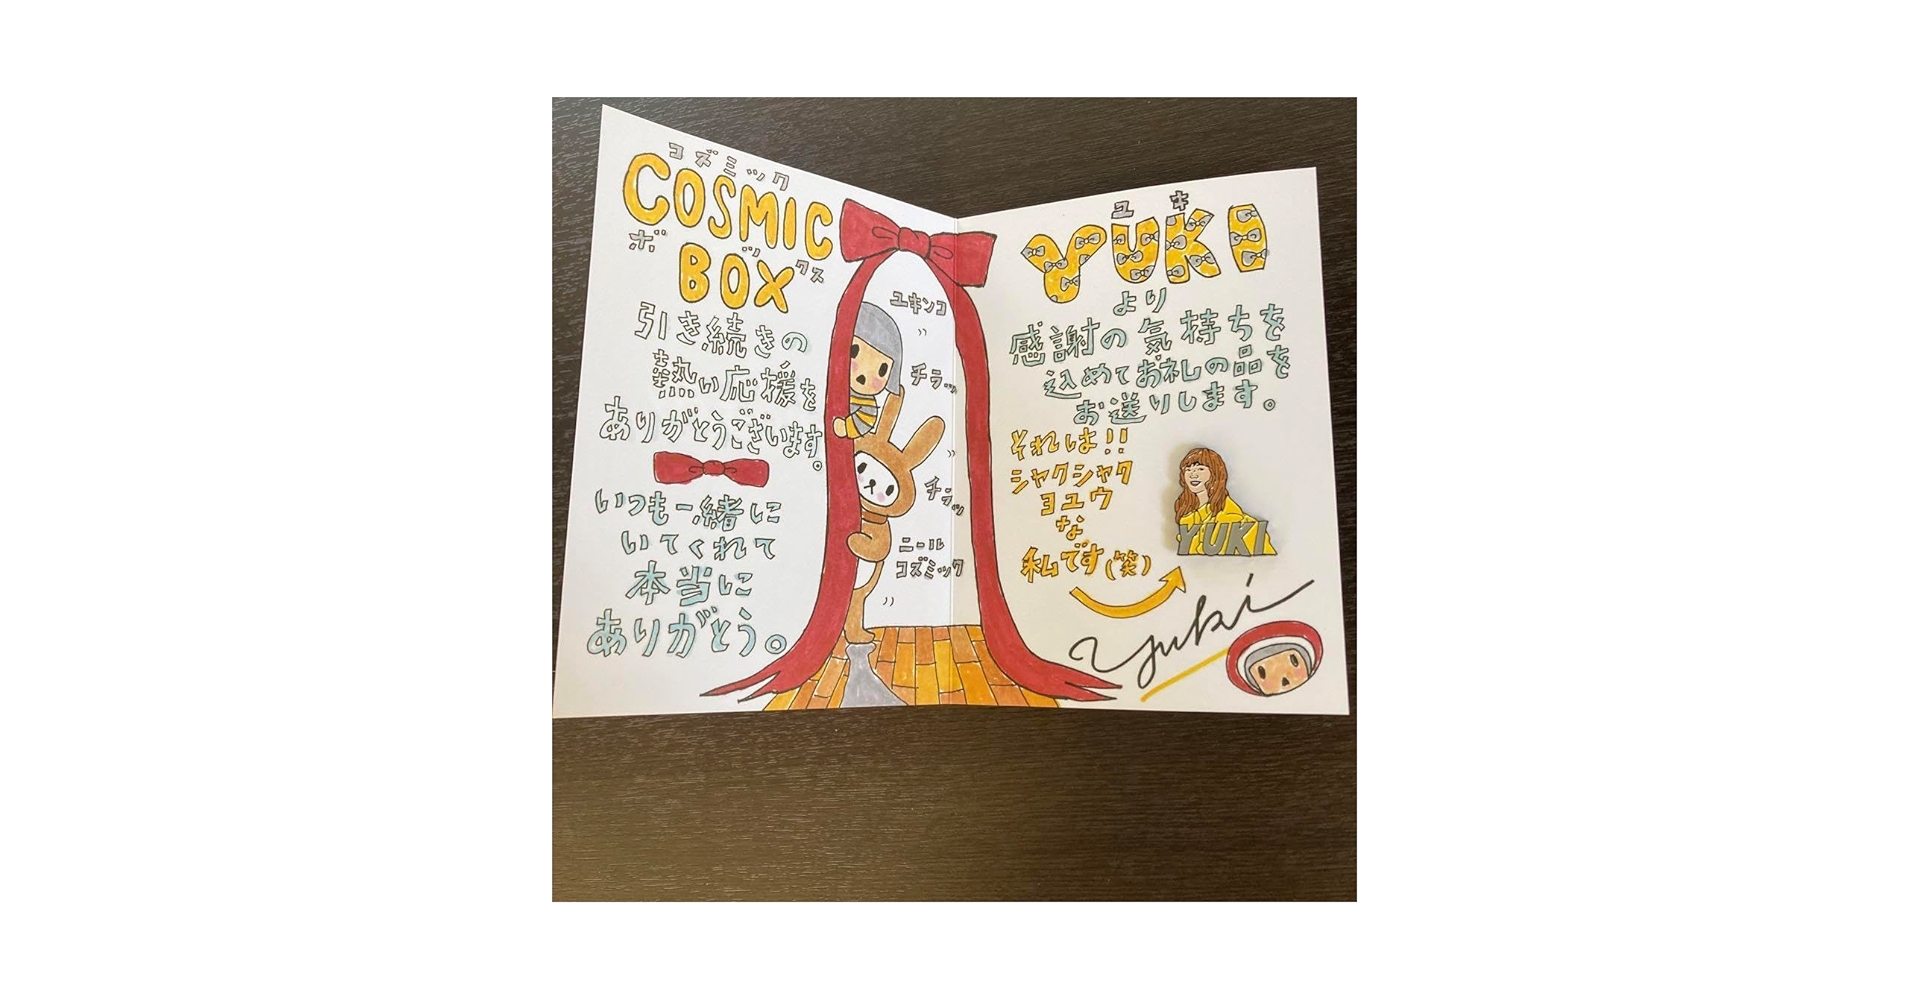 コズミック
COSMIC
ボックス
BOX
引き続きの
熱い応援を
ありがとうございます。
いつも一緒に
いてくれて
本当に
ありがとう。
ユキンコ
チラッ
チラッ
ニール
コズミック
ユキ
YUKI
より
感謝の気持ちを
込めてお礼の品を
お送りします。
それは!!
シャクシャク
ヨユウ
な
私です(笑)
YUKI
yuki